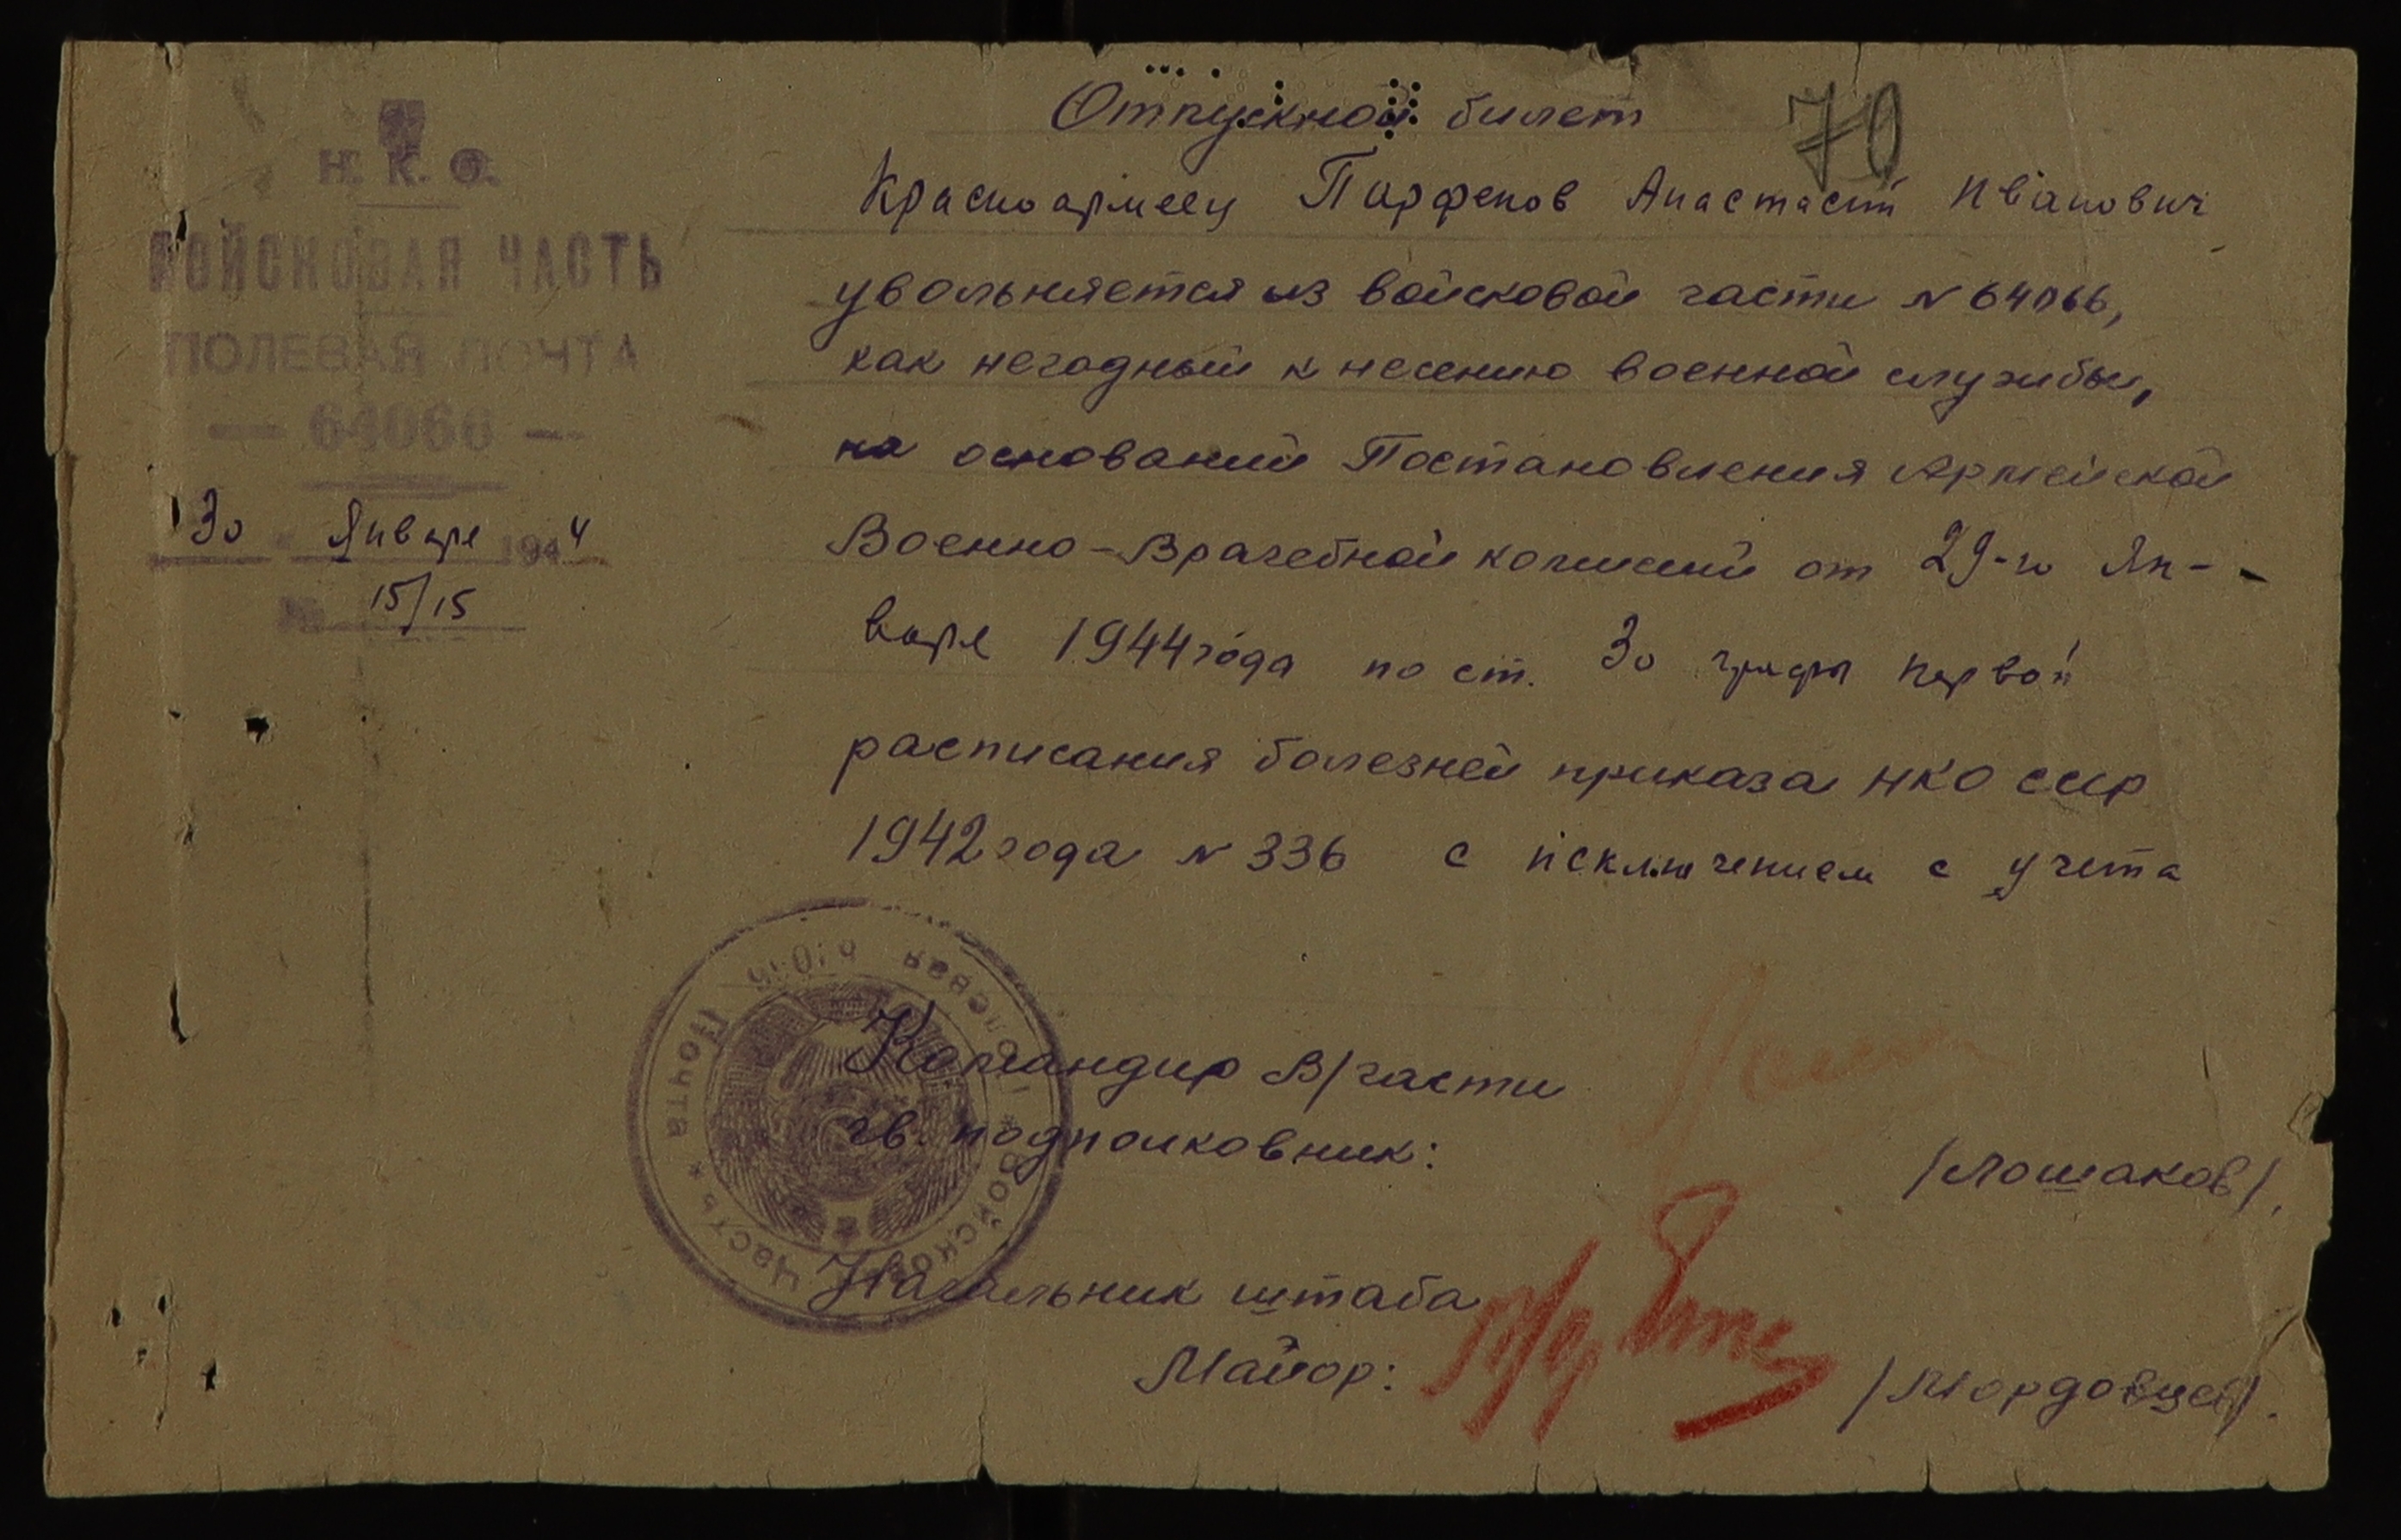 Н. К. О.
ВОЙСКОВАЯ ЧАСТЬ
ПОЛЕВАЯ ПОЧТА
— 64066 —
30 Января 1944
№ 15/15
Отпускной билет
70
Красноармеец Парфенов Анастасий Иванович
увольняется из войсковой части N 64066,
как негодный к несению военной службы,
на основании Постановления Армейской
Военно-Врачебной комиссии от 29-го Ян-
варя 1944 года по ст. 30 графы первой
расписания болезней приказа НКО СССР
1942 года N 336 с исключением с учета
Командир В/части
гв. подполковник: /Лошаков/.
Начальник штаба
Майор: /Мордовцев/.
Войсковая Часть * Полевая Почта *